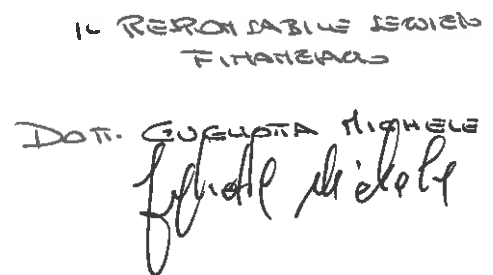 IL RESPONSABILE SERVIZIO
FINANZIARIO
DOTT. GUGLIOTTA MICHELE